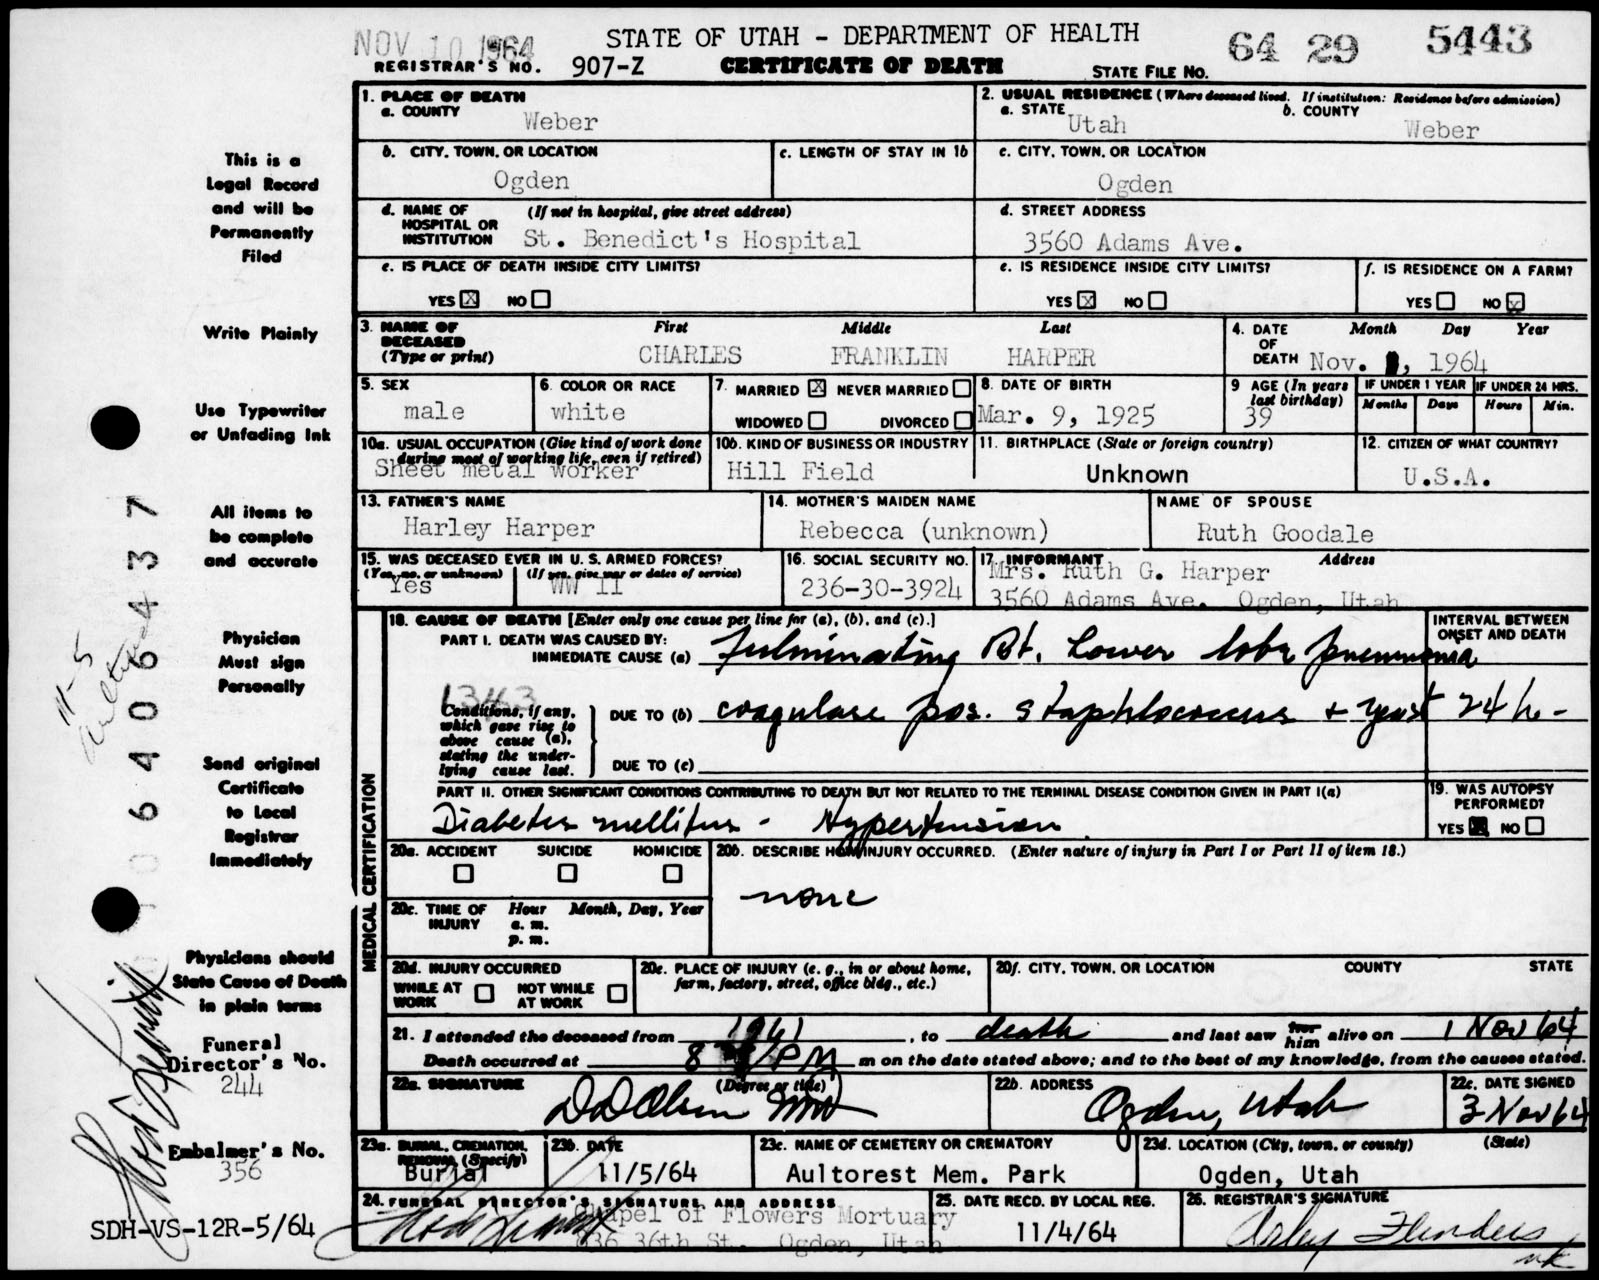 NOV 10 1964
STATE OF UTAH - DEPARTMENT OF HEALTH
64 29 5443
REGISTRAR'S NO. 907-Z
CERTIFICATE OF DEATH
STATE FILE NO.
This is a
Legal Record
and will be
Permanently
Filed
Write Plainly
Use Typewriter
or Unfading Ink
All items to
be complete
and accurate
Physician
Must sign
Personally
Send original
Certificate
to Local
Registrar
Immediately
Physicians should
State Cause of Death
in plain terms
Funeral
Director's No.
244
Embalmer's No.
356
SDH-VS-12R-5/64
11-5
1. PLACE OF DEATH
a. COUNTY
Weber
2. USUAL RESIDENCE (Where deceased lived. If institution: Residence before admission)
a. STATE Utah
b. COUNTY Weber
b. CITY, TOWN, OR LOCATION
Ogden
c. LENGTH OF STAY IN 1b
c. CITY, TOWN, OR LOCATION
Ogden
d. NAME OF HOSPITAL OR INSTITUTION
(If not in hospital, give street address)
St. Benedict's Hospital
d. STREET ADDRESS
3560 Adams Ave.
e. IS PLACE OF DEATH INSIDE CITY LIMITS?
YES X NO
e. IS RESIDENCE INSIDE CITY LIMITS?
YES X NO
f. IS RESIDENCE ON A FARM?
YES NO X
3. NAME OF DECEASED (Type or print)
First Middle Last
CHARLES FRANKLIN HARPER
4. DATE OF DEATH
Month Day Year
Nov. , 1964
5. SEX
male
6. COLOR OR RACE
white
7. MARRIED X NEVER MARRIED
WIDOWED DIVORCED
8. DATE OF BIRTH
Mar. 9, 1925
9 AGE (In years last birthday)
39
IF UNDER 1 YEAR
Months Days
IF UNDER 24 HRS.
Hours Min.
10a. USUAL OCCUPATION (Give kind of work done during most of working life, even if retired)
Sheet metal worker
10b. KIND OF BUSINESS OR INDUSTRY
Hill Field
11. BIRTHPLACE (State or foreign country)
Unknown
12. CITIZEN OF WHAT COUNTRY?
U.S.A.
13. FATHER'S NAME
Harley Harper
14. MOTHER'S MAIDEN NAME
Rebecca (unknown)
NAME OF SPOUSE
Ruth Goodale
15. WAS DECEASED EVER IN U. S. ARMED FORCES?
(Yes, no, or unknown) (If yes, give war or dates of service)
Yes WW II
16. SOCIAL SECURITY NO.
236-30-3924
17. INFORMANT Address
Mrs. Ruth G. Harper
3560 Adams Ave. Ogden, Utah
MEDICAL CERTIFICATION
18. CAUSE OF DEATH [Enter only one cause per line for (a), (b), and (c).]
PART I. DEATH WAS CAUSED BY:
IMMEDIATE CAUSE (a) Fulminating Rt. Lower lobe pneumonia
INTERVAL BETWEEN ONSET AND DEATH
Conditions, if any,
which gave rise to
above cause (a),
stating the under-
lying cause last.
DUE TO (b) coagulase pos. staphlococcus + yeast 24 h-
DUE TO (c)
PART II. OTHER SIGNIFICANT CONDITIONS CONTRIBUTING TO DEATH BUT NOT RELATED TO THE TERMINAL DISEASE CONDITION GIVEN IN PART I(a)
Diabetes mellitus - Hypertension
19. WAS AUTOPSY PERFORMED?
YES X NO
20a. ACCIDENT SUICIDE HOMICIDE
20b. DESCRIBE HOW INJURY OCCURRED. (Enter nature of injury in Part I or Part II of item 18.)
none
20c. TIME OF INJURY
Hour Month, Day, Year
a. m.
p. m.
20d. INJURY OCCURRED
WHILE AT WORK NOT WHILE AT WORK
20e. PLACE OF INJURY (e. g., in or about home, farm, factory, street, office bldg., etc.)
20f. CITY, TOWN, OR LOCATION COUNTY STATE
21. I attended the deceased from 1961, to death and last saw her him alive on 1 Nov 64
Death occurred at 8 PM m on the date stated above; and to the best of my knowledge, from the causes stated.
22a. SIGNATURE (Degree or title)
D D Olsen MD
22b. ADDRESS
Ogden, Utah
22c. DATE SIGNED
3 Nov 64
23a. BURIAL, CREMATION, REMOVAL (Specify)
Burial
23b. DATE
11/5/64
23c. NAME OF CEMETERY OR CREMATORY
Aultorest Mem. Park
23d. LOCATION (City, town, or county) (State)
Ogden, Utah
24. FUNERAL DIRECTOR'S SIGNATURE AND ADDRESS
Chapel of Flowers Mortuary
836 36th St. Ogden, Utah
25. DATE RECD. BY LOCAL REG.
11/4/64
26. REGISTRAR'S SIGNATURE
Flenders